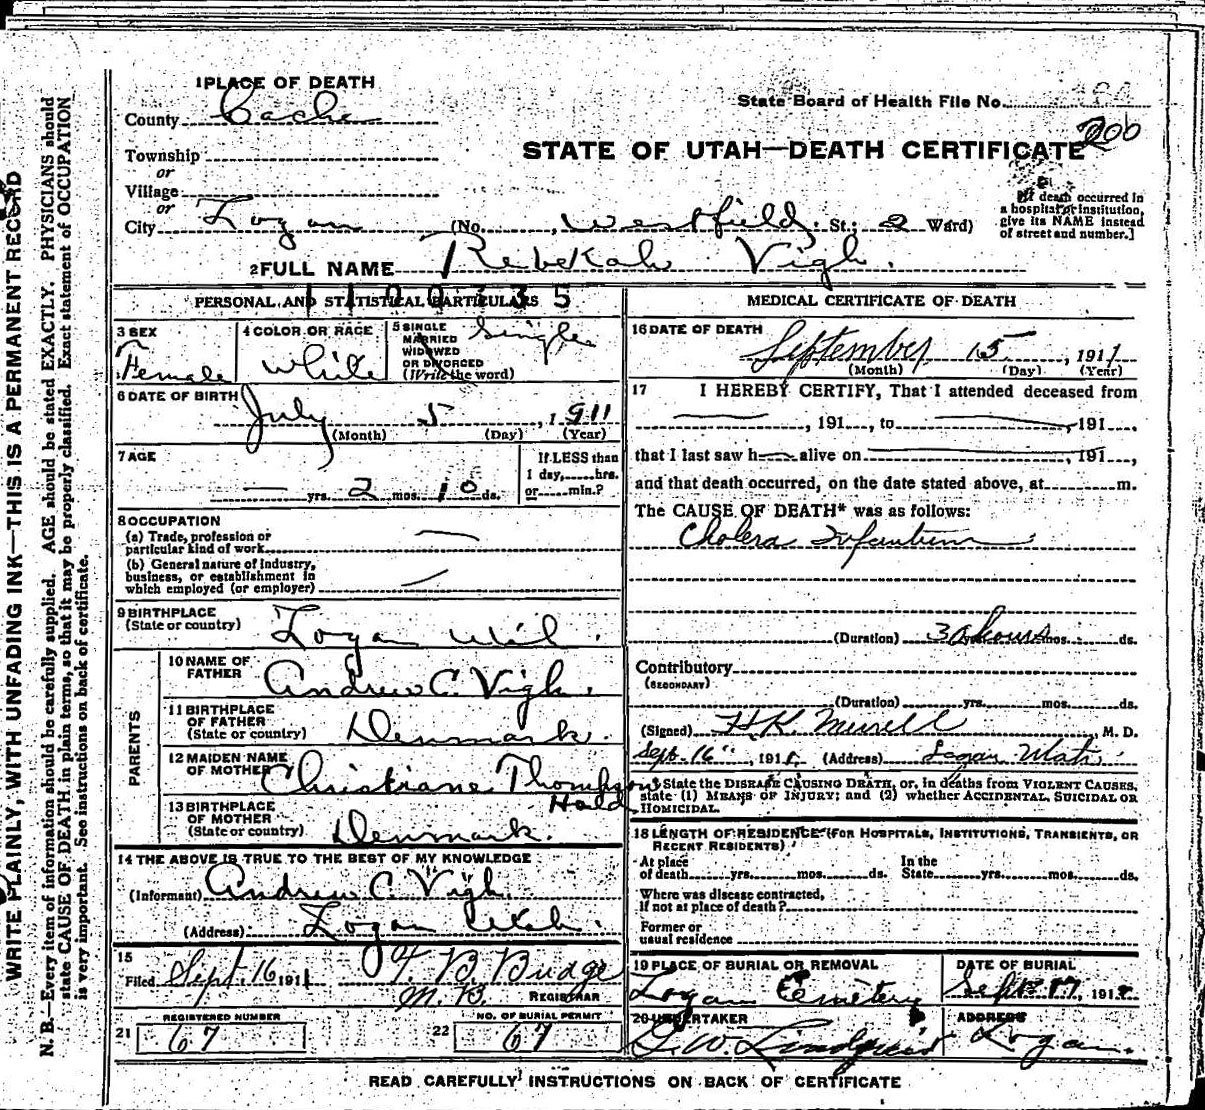 1 PLACE OF DEATH
County Cache
State Board of Health File No.
200
Township
or
STATE OF UTAH—DEATH CERTIFICATE
Village
or
City Logan (No. , Westfield St.; 2 Ward)
[If death occurred in
a hospital or institution,
give its NAME instead
of street and number.]
2 FULL NAME Rebekah Vigh.
1100335
PERSONAL AND STATISTICAL PARTICULARS
3 SEX
Female
4 COLOR OR RACE
White
5 SINGLE
MARRIED
WIDOWED
OR DIVORCED
(Write the word)
Single
6 DATE OF BIRTH
July 5, 1911
(Month) (Day) (Year)
7 AGE
— yrs. 2 mos. 10 ds.
If LESS than
1 day, hrs.
or min.?
8 OCCUPATION
(a) Trade, profession or
particular kind of work —
(b) General nature of industry,
business, or establishment in
which employed (or employer) —
9 BIRTHPLACE
(State or country)
Logan
PARENTS
10 NAME OF
FATHER
Andrew C. Vigh.
11 BIRTHPLACE
OF FATHER
(State or country)
Denmark.
12 MAIDEN NAME
OF MOTHER
Christiane Thompson
Hald
13 BIRTHPLACE
OF MOTHER
(State or country)
Denmark.
14 THE ABOVE IS TRUE TO THE BEST OF MY KNOWLEDGE
(Informant) Andrew C. Vigh.
(Address) Logan Utah.
15
Filed Sept. 16 1911 F. B. Budge
M. D. REGISTRAR
REGISTERED NUMBER
21 67
NO. OF BURIAL PERMIT
22 67
MEDICAL CERTIFICATE OF DEATH
16 DATE OF DEATH
September 15, 1911
(Month) (Day) (Year)
17 I HEREBY CERTIFY, That I attended deceased from
—, 191 , to —, 191 ,
that I last saw h— alive on —, 191 ,
and that death occurred, on the date stated above, at m.
The CAUSE OF DEATH* was as follows:
Cholera Infantum
(Duration) yrs. hours mos. ds.
Contributory
(SECONDARY)
(Duration) yrs. mos. ds.
(Signed) H. K. Merrell, M. D.
Sept. 16", 191 (Address) Logan Utah
*State the DISEASE CAUSING DEATH, or, in deaths from VIOLENT CAUSES,
state (1) MEANS OF INJURY; and (2) whether ACCIDENTAL, SUICIDAL OR
HOMICIDAL.
18 LENGTH OF RESIDENCE (FOR HOSPITALS, INSTITUTIONS, TRANSIENTS, OR
RECENT RESIDENTS)
At place
of death yrs. mos. ds.
In the
State yrs. mos. ds.
Where was disease contracted,
If not at place of death?
Former or
usual residence
19 PLACE OF BURIAL OR REMOVAL
Logan Cemetery
DATE OF BURIAL
Sept. 17, 191
20 UNDERTAKER
G. W. Lindquist
ADDRESS
Logan.
READ CAREFULLY INSTRUCTIONS ON BACK OF CERTIFICATE
WRITE PLAINLY, WITH UNFADING INK—THIS IS A PERMANENT RECORD
N. B.—Every item of information should be carefully supplied. AGE should be stated EXACTLY. PHYSICIANS should
state CAUSE OF DEATH in plain terms, so that it may be properly classified. Exact statement of OCCUPATION
is very important. See instructions on back of certificate.